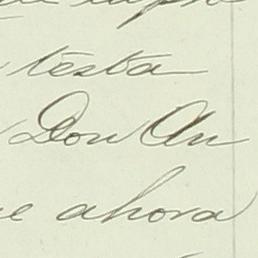 testa
Don An
e ahora